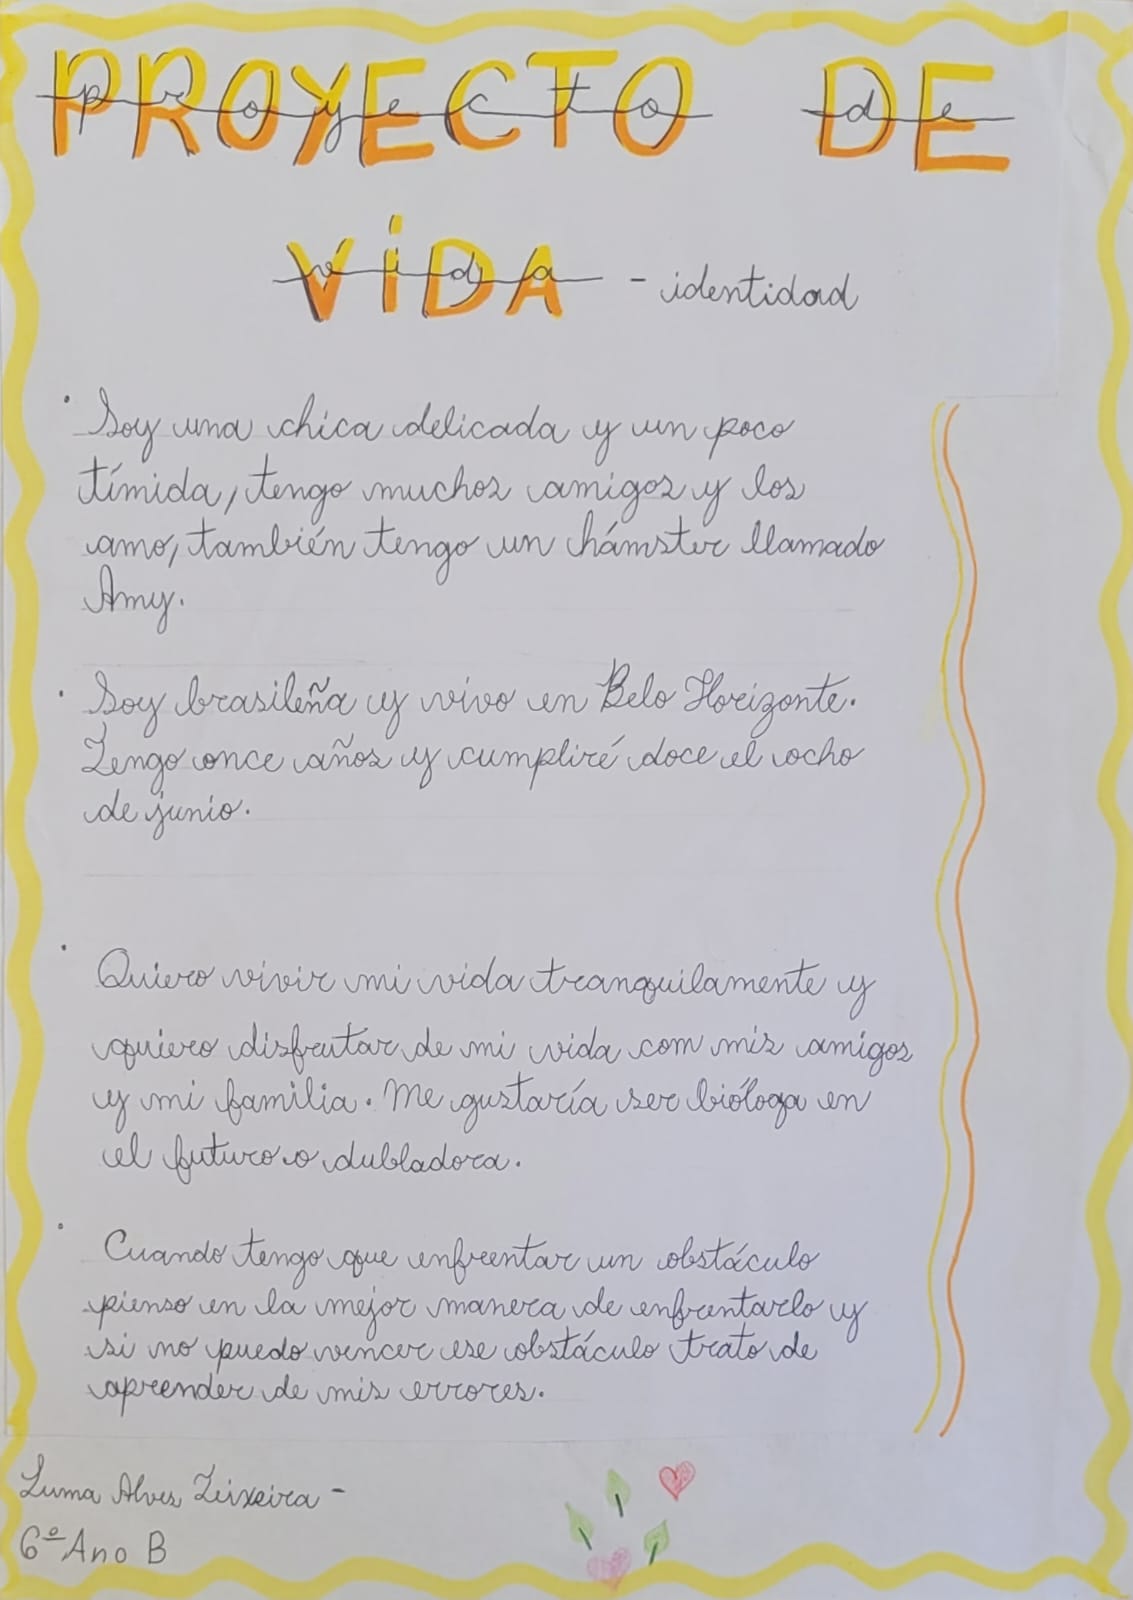 PROYECTO DE
proyecto de
ViDA - identidad
vida
· Soy una chica delicada y un poco
tímida, tengo muchos amigos y los
amo, también tengo un hámster llamado
Amy.
· Soy brasileña y vivo en Belo Horizonte.
Tengo once años y cumpliré doce el ocho
de junio.
· Quiero vivir mi vida tranquilamente y
quiero disfrutar de mi vida com mis amigos
y mi familia. Me gustaría ser bióloga en
el futuro o dubladora.
· Cuando tengo que enfrentar un obstáculo
pienso en la mejor manera de enfrentarlo y
si no puedo vencer ese obstáculo trato de
aprender de mis errores.
Luma Alves Teixeira -
6º Ano B